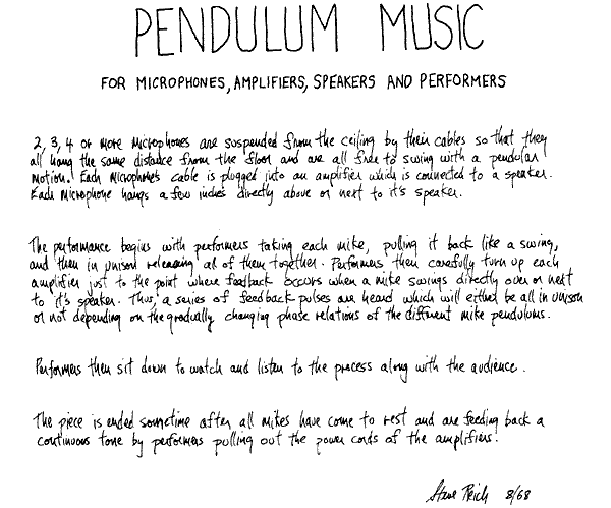 PENDULUM MUSIC
FOR MICROPHONES, AMPLIFIERS, SPEAKERS AND PERFORMERS
2, 3, 4 or more microphones are suspended from the ceiling by their cables so that they
all hang the same distance from the floor and are all free to swing with a pendular
motion. Each microphone's cable is plugged into an amplifier which is connected to a speaker.
Each microphone hangs a few inches directly above or next to it's speaker.
The performance begins with performers taking each mike, pulling it back like a swing,
and then in unison releasing all of them together. Performers then carefully turn up each
amplifier just to the point where feedback occurs when a mike swings directly over or next
to it's speaker. Thus, a series of feedback pulses are heard which will either be all in unison
or not depending on the gradually changing phase relations of the different mike pendulums.
Performers then sit down to watch and listen to the process along with the audience.
The piece is ended sometime after all mikes have come to rest and are feeding back a
continuous tone by performers pulling out the power cords of the amplifiers.
Steve Reich 8/68